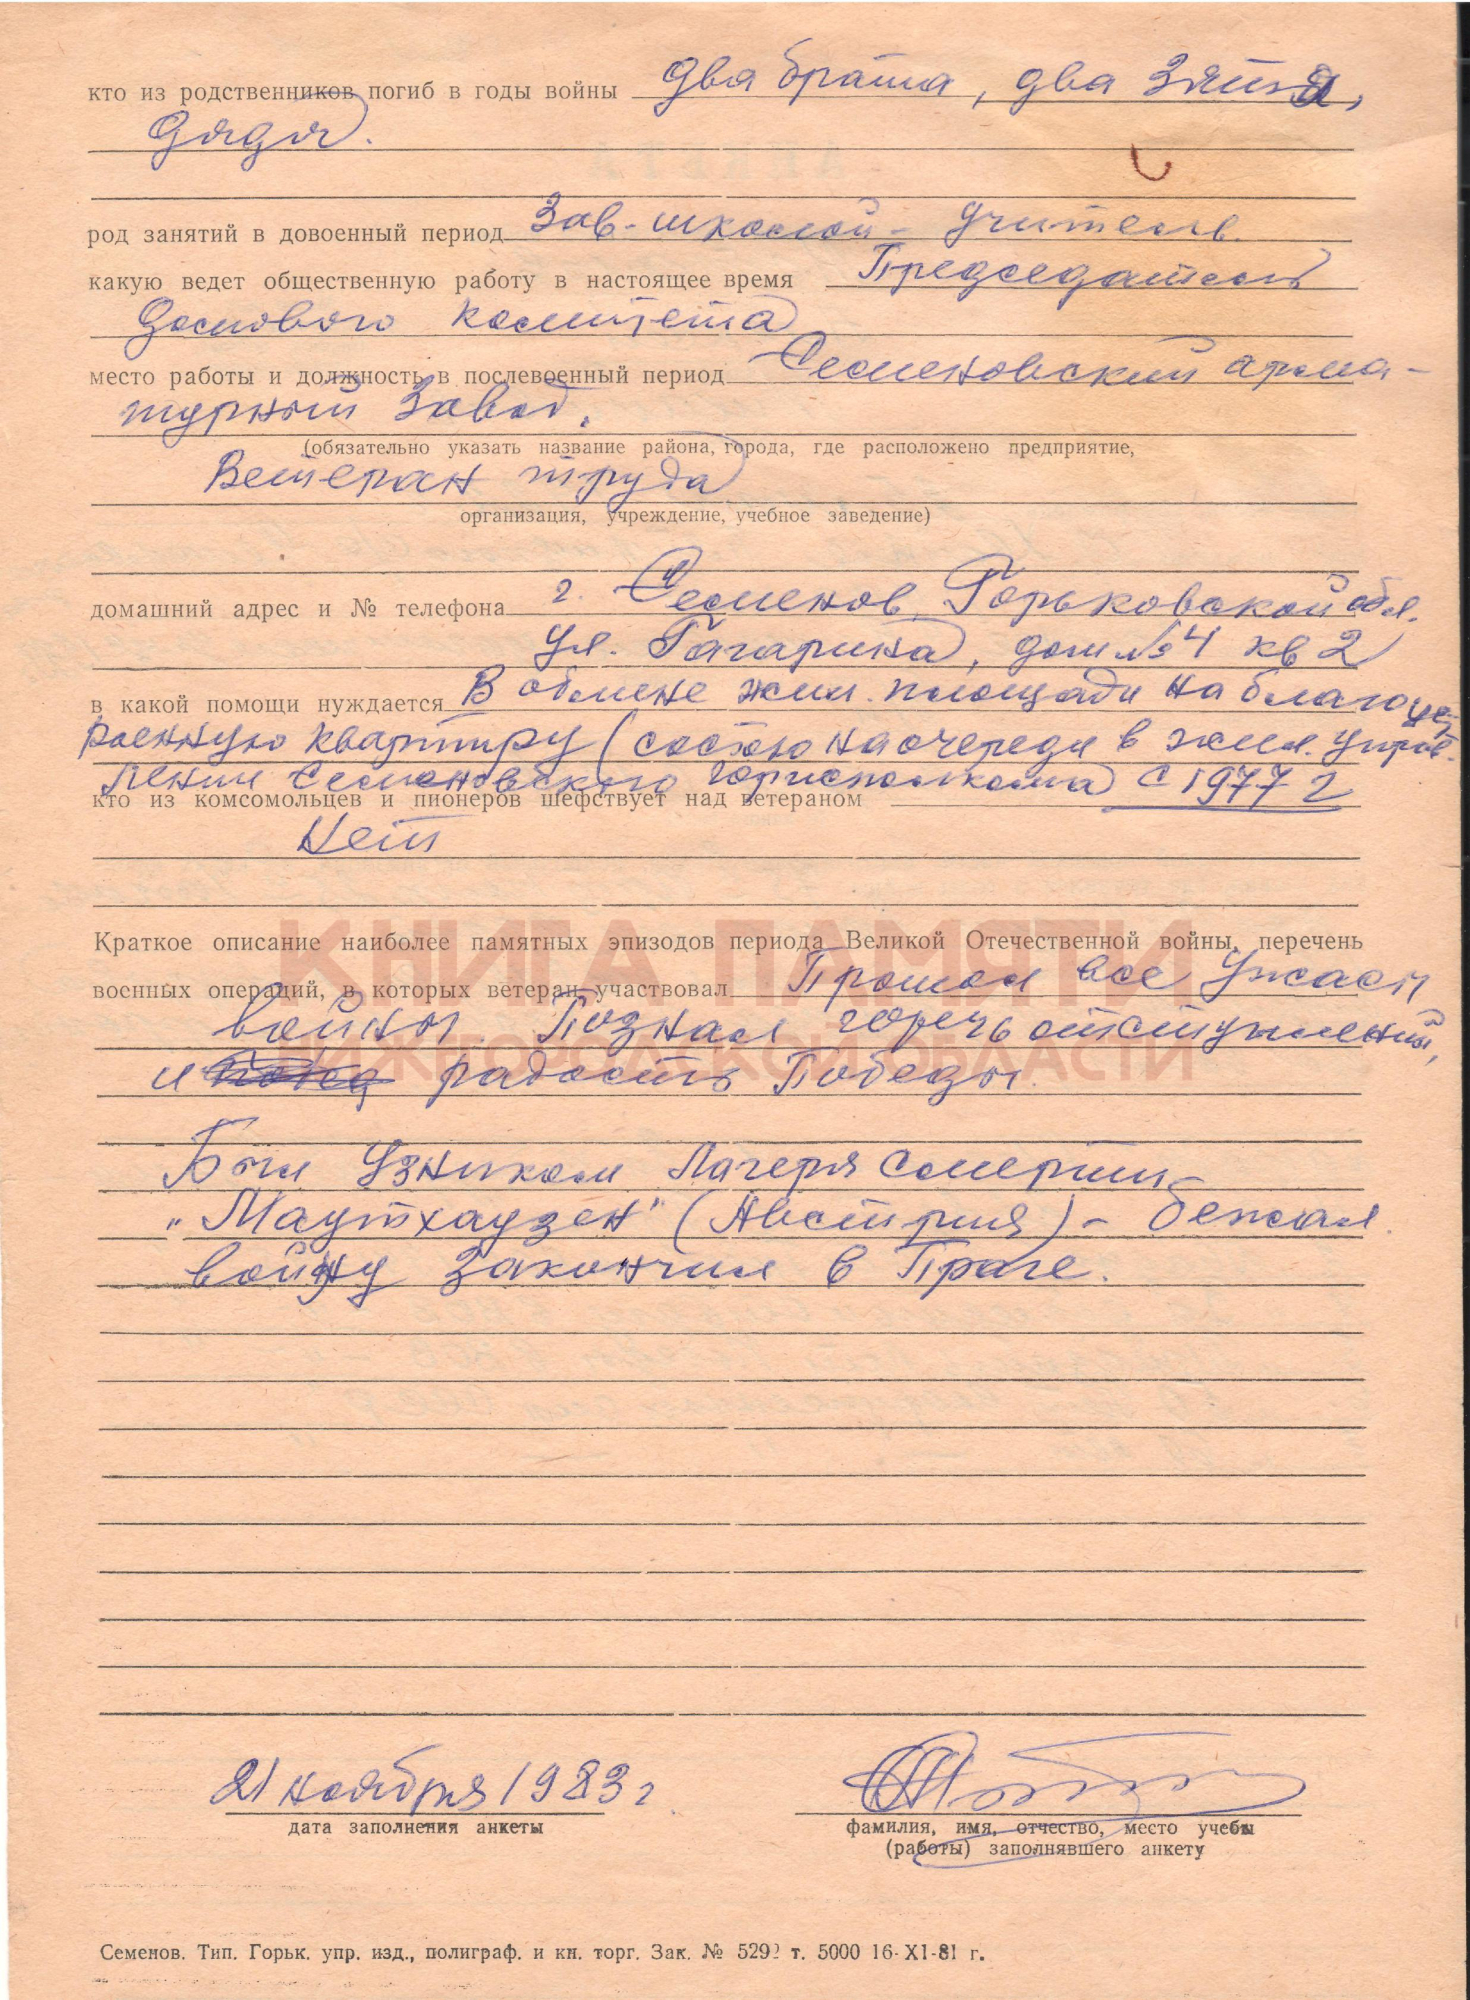 кто из родственников погиб в годы войны два брата, два зятя,
дядя.
род занятий в довоенный период Зав. школой - учитель.
какую ведет общественную работу в настоящее время Председатель
домового комитета
место работы и должность в послевоенный период Семеновский арма-
турный завод.
(обязательно указать название района, города, где расположено предприятие,
Ветеран труда
организация, учреждение, учебное заведение)
домашний адрес и № телефона г. Семенов, Горьковской обл.
ул. Гагарина, дом №4 кв 2
в какой помощи нуждается В обмене жил. площади на благоуст
роенную квартиру (состою на очереди в жил. управ-
лении Семеновского горисполкома) с 1977 г
кто из комсомольцев и пионеров шефствует над ветераном
Нет
КНИГА ПАМЯТИ
Краткое описание наиболее памятных эпизодов периода Великой Отечественной войны, перечень
военных операций, в которых ветеран участвовал Прошол все ужасы
войны. Познал горечь отступлений,
НИЖЕГОРОДСКОЙ ОБЛАСТИ
и радость Победы.
Был узником лагеря смерти
"Маутхаузен" (Австрия) - бежал.
войну закончил в Праге.
21 ноября 1983 г.
дата заполнения анкеты
фамилия, имя, отчество, место учебы
(работы) заполнявшего анкету
Семенов. Тип. Горьк. упр. изд., полиграф. и кн. торг. Зак. № 5292 т. 5000 16-XI-81 г.